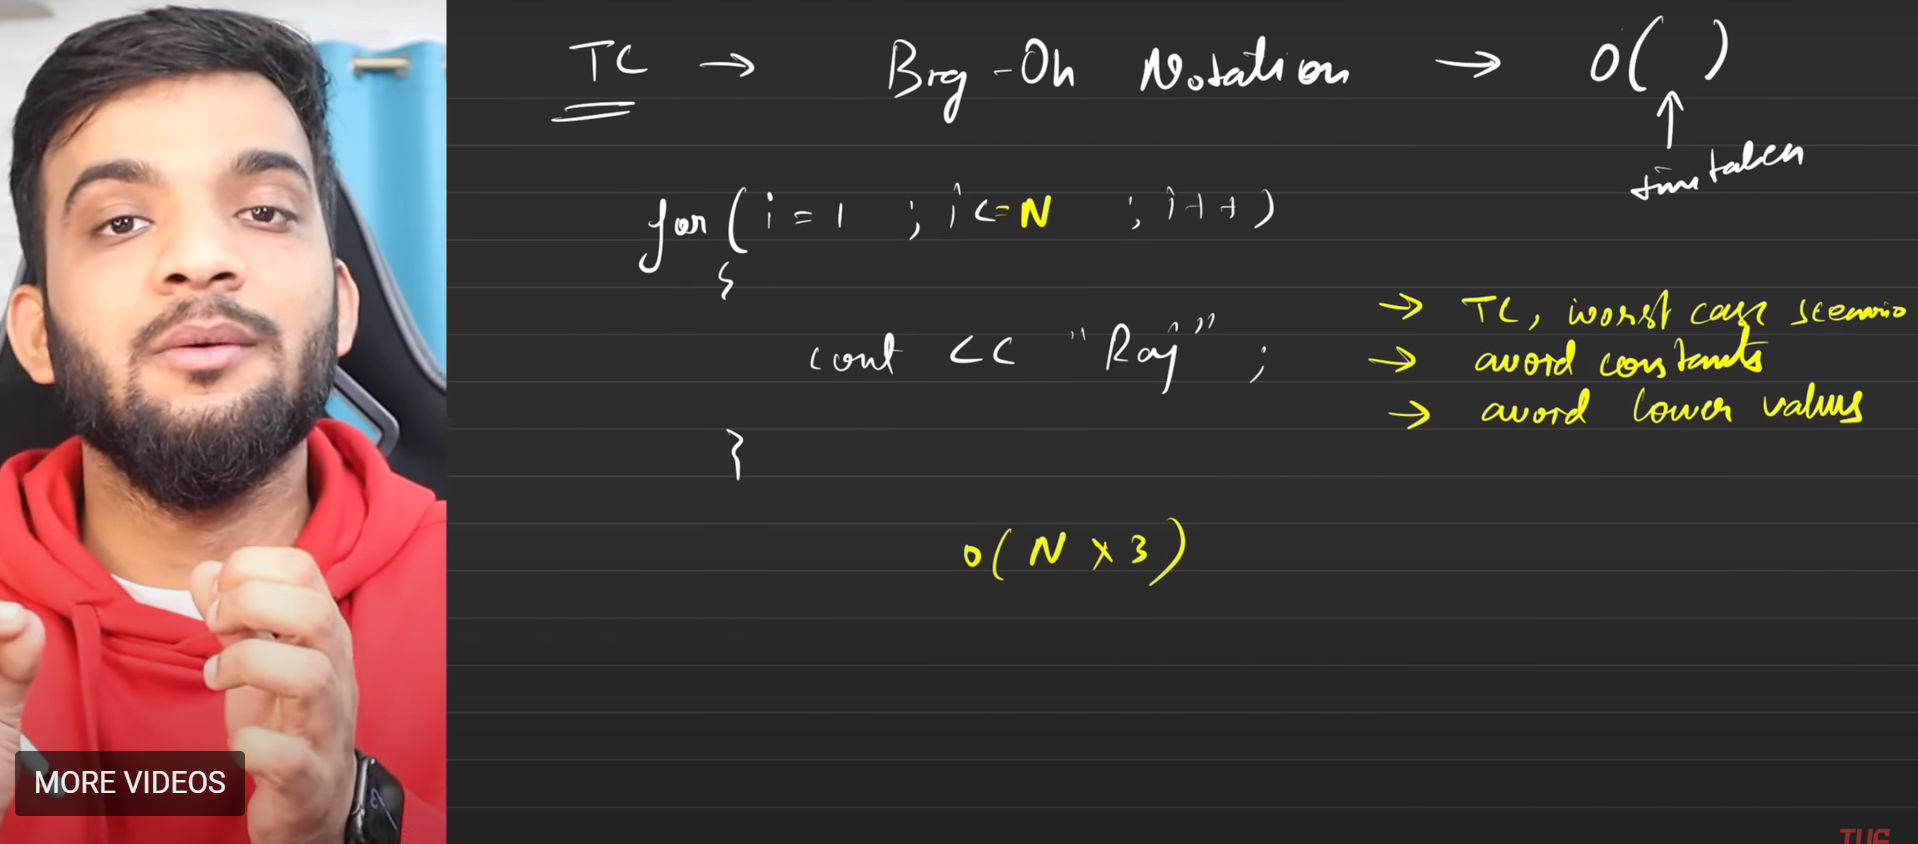 TC → Big-Oh Notation → O( )
↑
time taken
for( i = 1 ; i <= N ; i++ )
{
cout << "Raj" ;
}
→ TC, worst case scenario
→ avoid constants
→ avoid lower values
O( N x 3 )
MORE VIDEOS
TUF